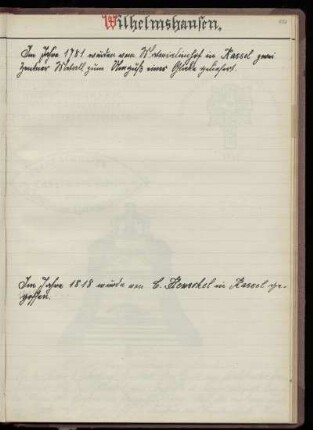 Wilhelmshausen.
Im Jahre 1781 wurden vom in Kassel zwei
Zentner Metall zum Umguß einer Glocke geliefert.
Im Jahre 1818 wurde von C. Henschel in Kassel ge-
gossen